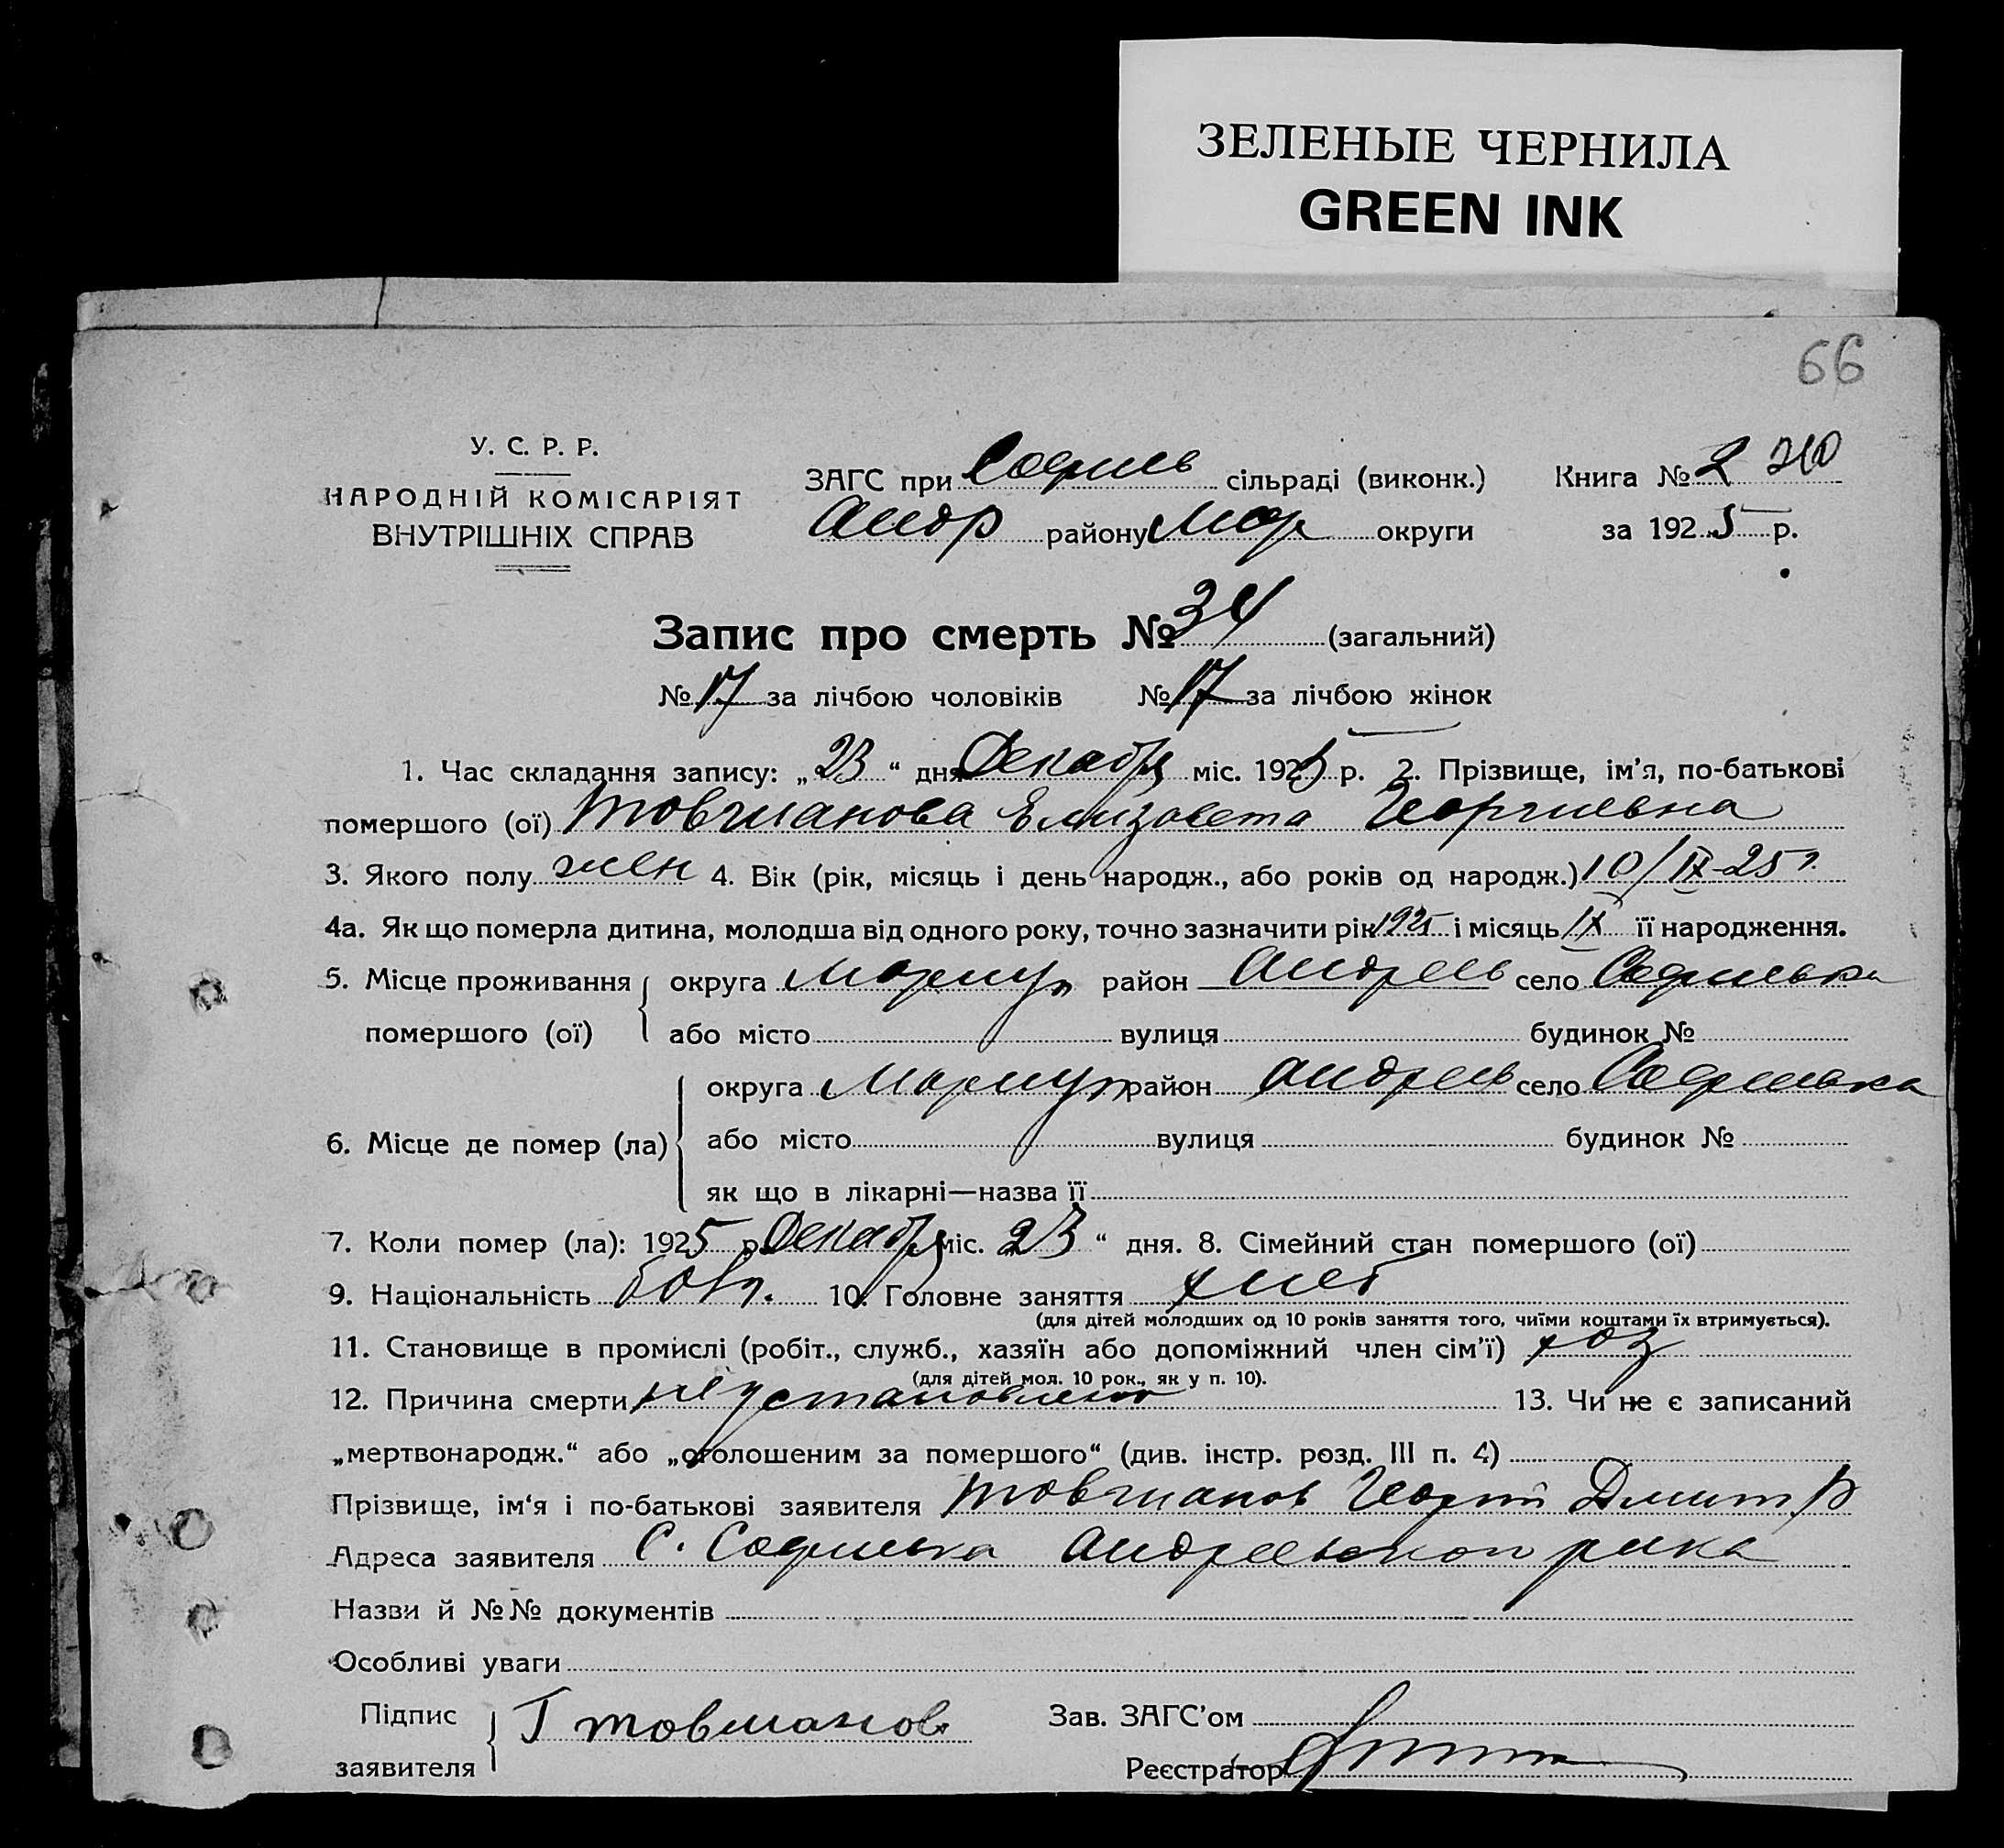 ЗЕЛЕНЫЕ ЧЕРНИЛА
GREEN INK
66
У. С. Р. Р.
НАРОДНІЙ КОМІСАРІЯТ
ВНУТРІШНІХ СПРАВ
ЗАГС при Софиев сільраді (виконк.) Книга № 2
Андр району Мар округи за 1925 р.
Запис про смерть № 34 (загальний)
№ 17 за лічбою чоловіків № 17 за лічбою жінок
1. Час складання запису: „23“ дня Декабря міс. 1925 р. 2. Прізвище, ім’я, по-батькові
помершого (ої) Товчианова Елизавета Георгиевна
3. Якого полу жен 4. Вік (рік, місяць і день народж., або років од народж.) 10/IX-25 г.
4а. Як що померла дитина, молодша від одного року, точно зазначити рік 1925 і місяць IX її народження.
5. Місце проживання округа Мариуп район Андреев село Софиевка
помершого (ої) або місто вулиця будинок №
округа Мариуп район Андреев село Софиевка
6. Місце де помер (ла) або місто вулиця будинок №
як що в лікарні—назва її
7. Коли помер (ла): 1925 р. Декабря міс. 23 “ дня. 8. Сімейний стан помершого (ої)
9. Національність болг. 10. Головне заняття хлеб
(для дітей молодших од 10 років заняття того, чиїми коштами їх втримується).
11. Становище в промислі (робіт., служб., хазяїн або допоміжний член сім’ї) хоз
(для дітей мол. 10 рок., як у п. 10).
12. Причина смерти не установлено 13. Чи не є записаний
„мертвонародж.“ або „оголошеним за помершого“ (див. інстр. розд. III п. 4)
Прізвище, ім‘я і по-батькові заявителя Товчианов Георгий Дмитр
Адреса заявителя С. Софиевка Андреевского р-на
Назви й №№ документів
Особливі уваги
Підпис заявителя Г Товчианов Зав. ЗАГС’ом
Реєстратор